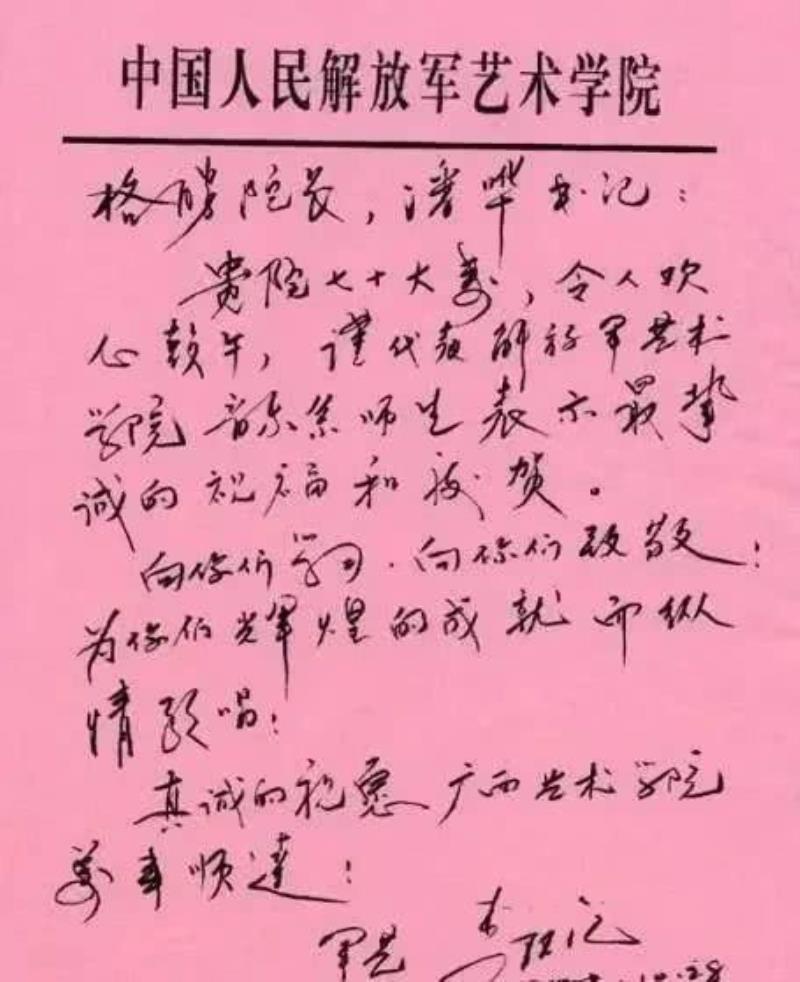 中国人民解放军艺术学院
格勝院长，潘晔书记：
贵院七十大寿，令人欢
心鼓午，谨代表解放军艺术
学院音乐系师生表示最挚
诚的祝福和祝贺。
向你们学习．向你们致敬！
为你们光辉煌的成就而纵
情歌唱！
真诚的祝愿广西艺术学院
萬事顺達！
军艺 李
10.28